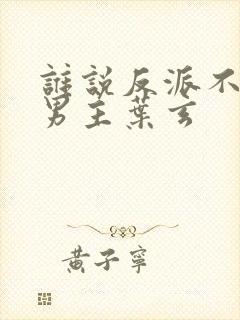 誰說反派不
男主葉玄
黃子寧